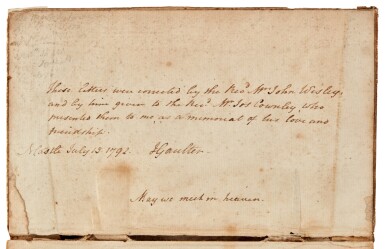 These letters were corrected by the Revd. Mr. John Wesley,
and by him given to the Revd. Mr. Jos Cownley, who
presented them to me, as a memorial of his love and
friendship.
NCastle July 13 1792. JGaulter
May we meet in heaven.